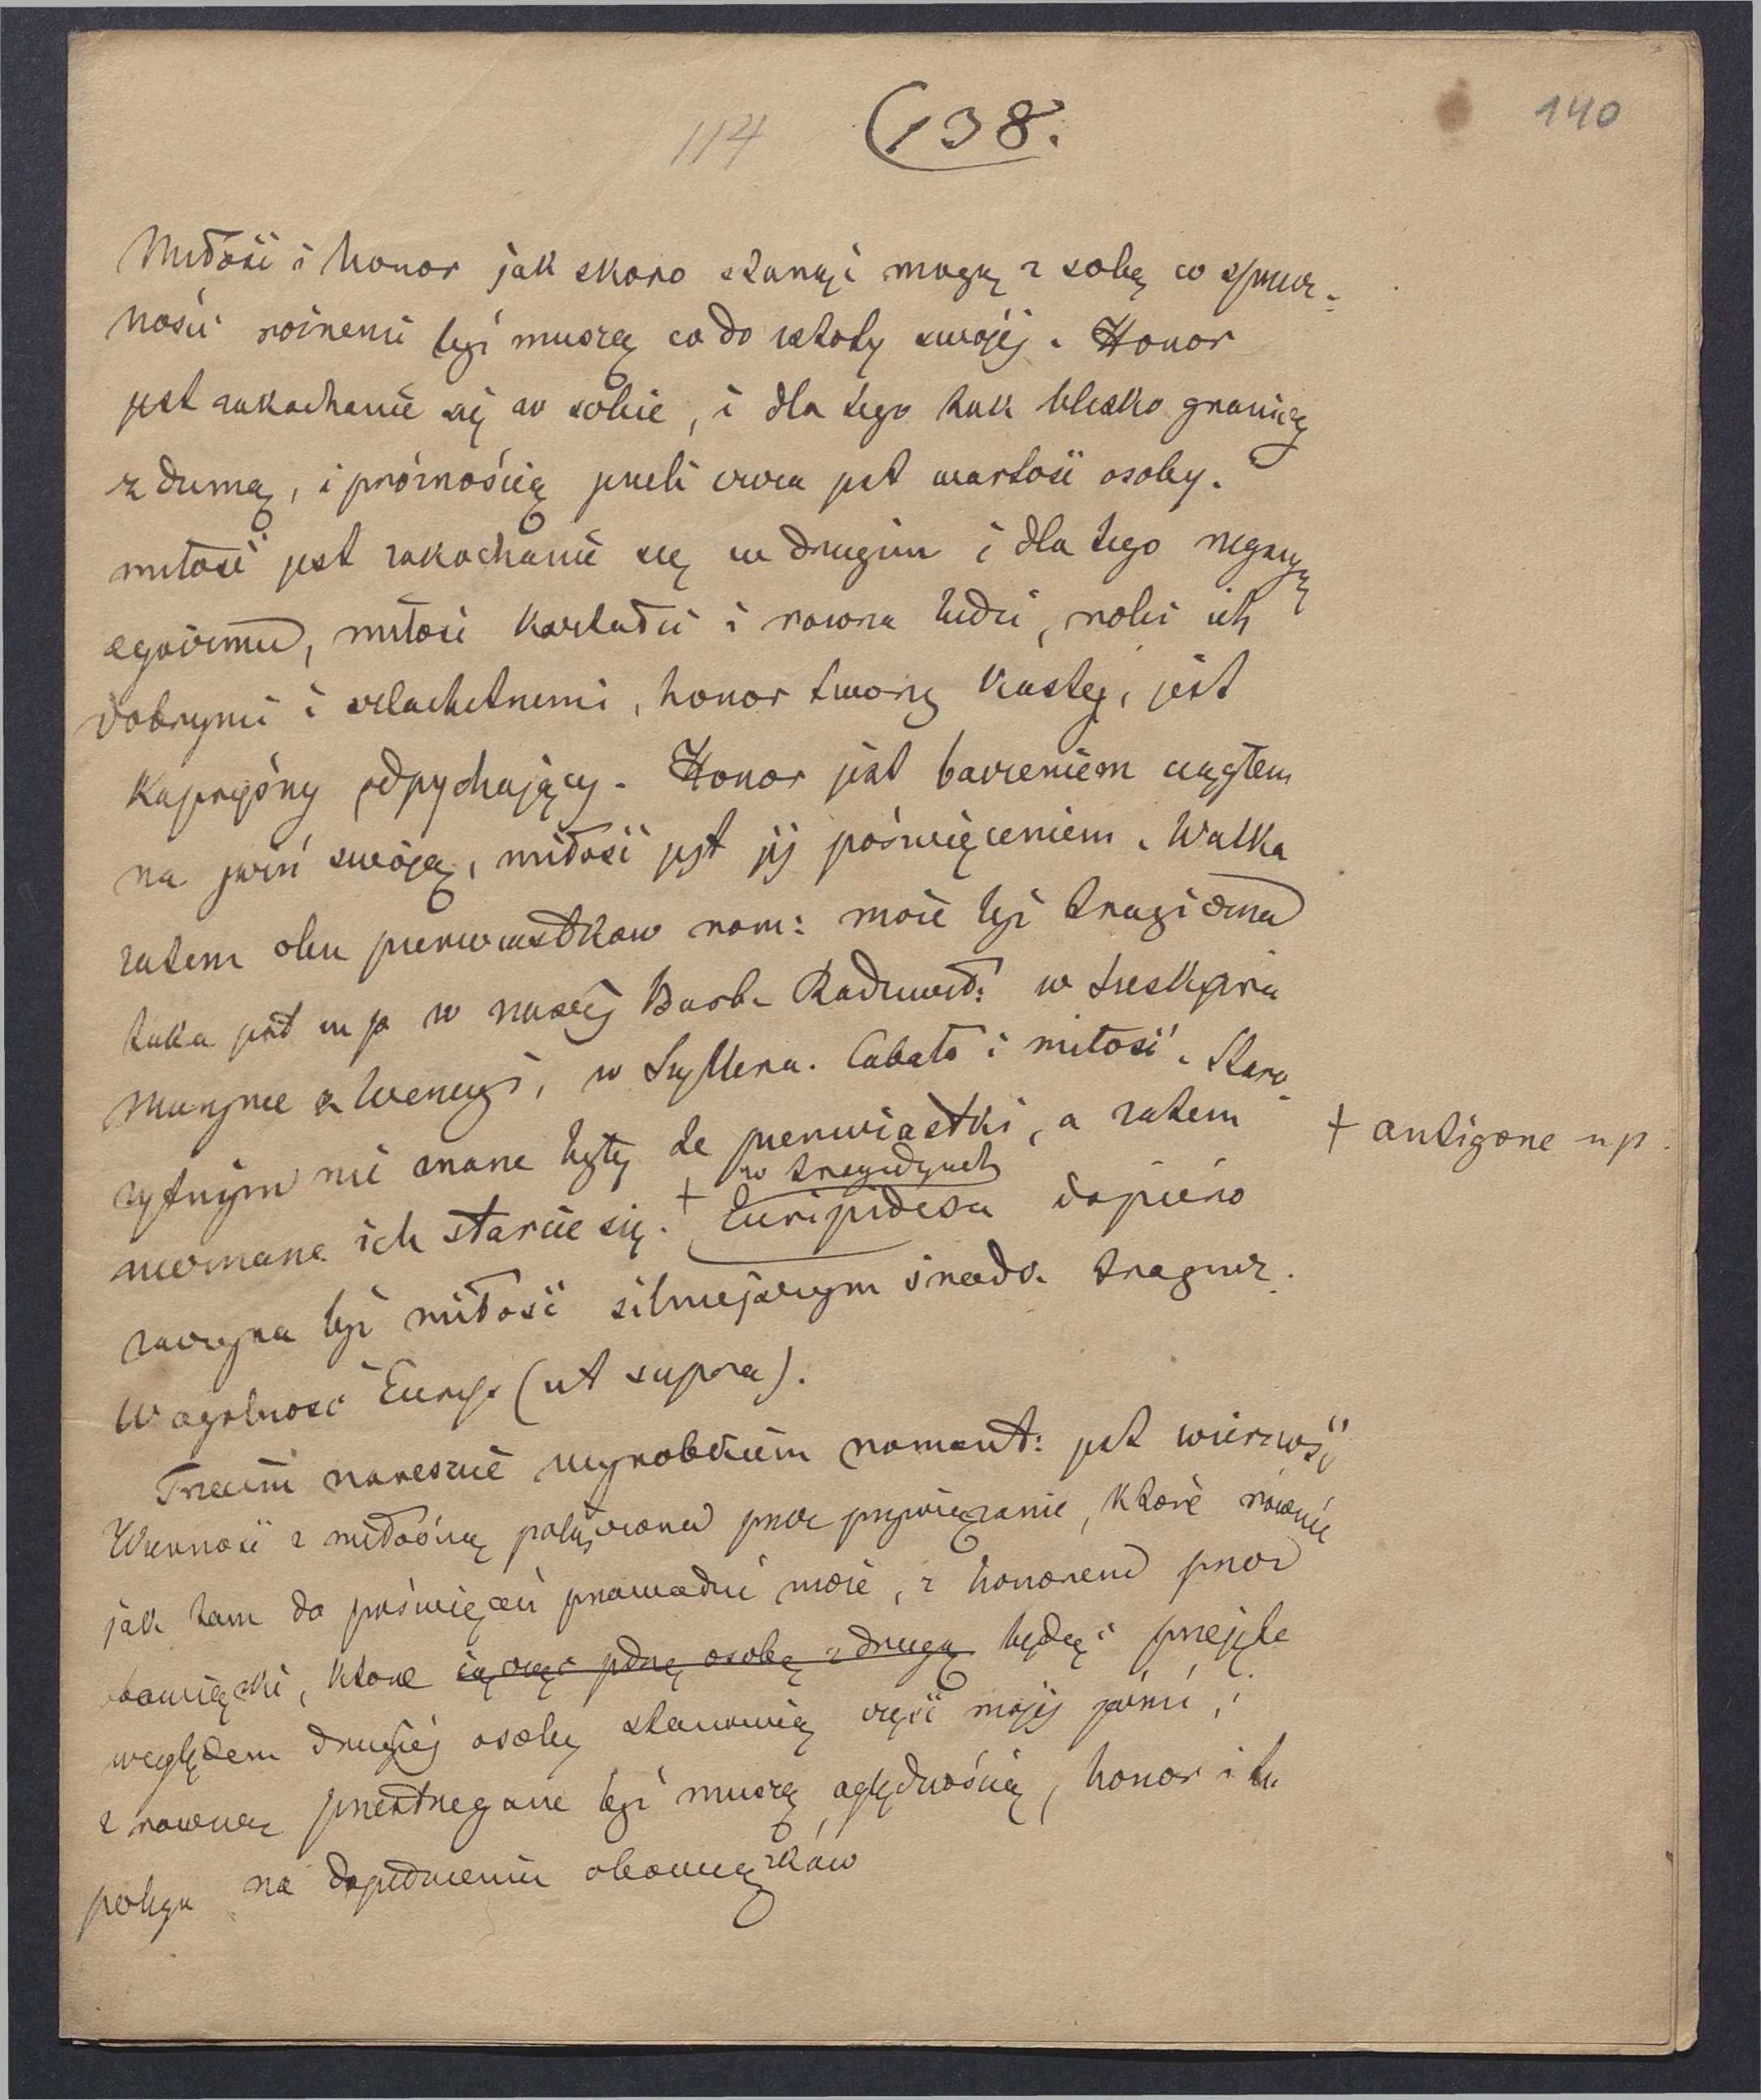 114 138. 140
Miłość i honor jak skoro stanąć mogą z sobą w sprzecz-
ności różnemi być muszą co do istoty swojéj. Honor
jest zakochanie się w sobie, i dla tego tak blisko graniczy
z dumą, i próżnością jeżeli czcza jest wartość osoby.
miłość jest zakochanie się w drugim i dla tego negacyą
egoizmu, miłość kształci i równa ludzi, robi ich
dobrymi i szlachetnemi, honor tworzy kasty, jest
kapryśny odpychający. Honor jest baczeniem ciągłem
na jaźń swoją, miłość jest jéj poświęceniem. Walka
zatem obu pierwiastków rom: może być tragiczna
taka jest n p w naszéj Barb. Radziwiłł: w Szekspira
Murzynie z Wenecyi, w Szyllera. Cabała i miłość. Staro-
żytnym nie znane były te pierwiastki, a zatem
nieznane ich starcie się. + w tragedyach Euripidesa dopiéro
+ antigone n p.
zaczyna być miłość silniejszym środk. tragicz.
W ogólność Euryp. (ut supra).
Trzecim nareszcie wyrobkiem romant: jest wierność
Wierność z miłością połączona przez przywiązanie, które równie
jak tam do poświęceń prowadzić może, z honorem przez
obowiązki, które łączyć jedną osobę z drugą będąc przejęte
względem drugiéj osoby stanowią część mojéj jaźni, i
z równą przestrzegane być muszą oględnością, honor i tu
polega na dopełnieniu obowiązków